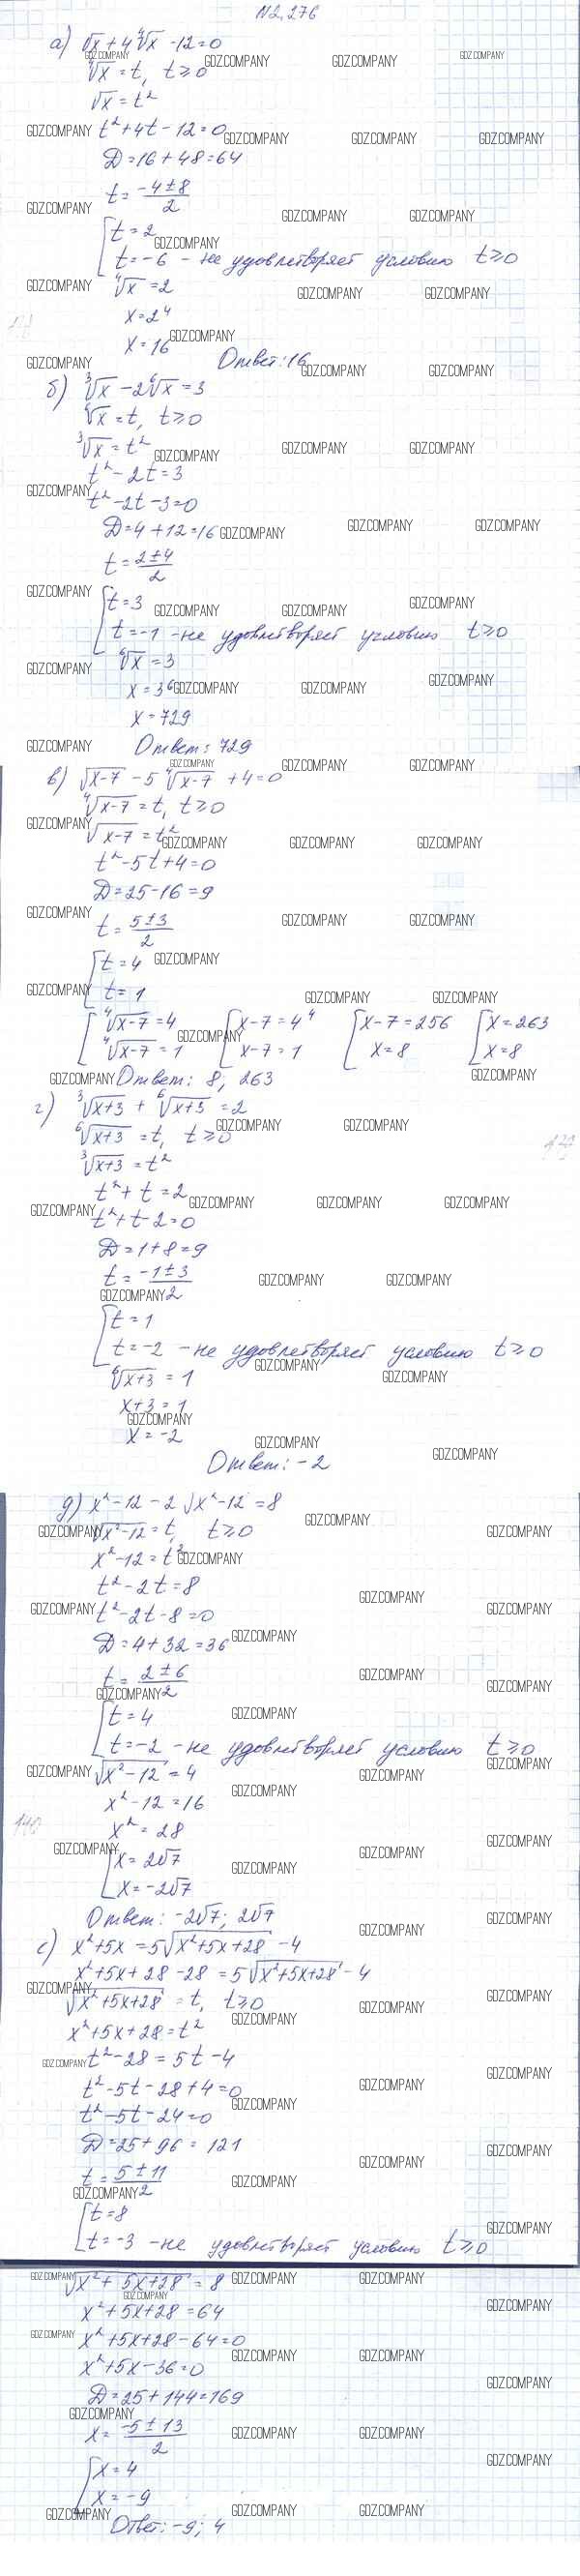 N2.276
а) √x + 4 ⁴√x - 12 = 0
⁴√x = t, t ≥ 0
√x = t²
t² + 4t - 12 = 0
D = 16 + 48 = 64
t = (-4 ± 8)/2
[ t = 2
t = -6 - не удовлетворяет условию t ≥ 0
⁴√x = 2
x = 2⁴
x = 16
Ответ: 16
б) ³√x - 2 ⁶√x = 3
⁶√x = t, t ≥ 0
³√x = t²
t² - 2t = 3
t² - 2t - 3 = 0
D = 4 + 12 = 16
t = (2 ± 4)/2
[ t = 3
t = -1 - не удовлетворяет условию t ≥ 0
⁶√x = 3
x = 3⁶
x = 729
Ответ: 729
в) √(x-7) - 5 ⁴√(x-7) + 4 = 0
⁴√(x-7) = t, t ≥ 0
√(x-7) = t²
t² - 5t + 4 = 0
D = 25 - 16 = 9
t = (5 ± 3)/2
[ t = 4
t = 1
[ ⁴√(x-7) = 4 [ x-7 = 4⁴ [ x-7 = 256 [ x = 263
⁴√(x-7) = 1 x-7 = 1 x = 8 x = 8
Ответ: 8, 263
г) ³√(x+3) + ⁶√(x+3) = 2
⁶√(x+3) = t, t ≥ 0
³√(x+3) = t²
t² + t = 2
t² + t - 2 = 0
D = 1 + 8 = 9
t = (-1 ± 3)/2
[ t = 1
t = -2 - не удовлетворяет условию t ≥ 0
⁶√(x+3) = 1
x + 3 = 1
x = -2
Ответ: -2
д) x² - 12 - 2√(x² - 12) = 8
√(x² - 12) = t, t ≥ 0
x² - 12 = t²
t² - 2t = 8
t² - 2t - 8 = 0
D = 4 + 32 = 36
t = (2 ± 6)/2
[ t = 4
t = -2 - не удовлетворяет условию t ≥ 0
√(x² - 12) = 4
x² - 12 = 16
x² = 28
[ x = 2√7
x = -2√7
Ответ: -2√7; 2√7
е) x² + 5x = 5√(x² + 5x + 28) - 4
x² + 5x + 28 - 28 = 5√(x² + 5x + 28) - 4
√(x² + 5x + 28) = t, t ≥ 0
x² + 5x + 28 = t²
t² - 28 = 5t - 4
t² - 5t - 28 + 4 = 0
t² - 5t - 24 = 0
D = 25 + 96 = 121
t = (5 ± 11)/2
[ t = 8
t = -3 - не удовлетворяет условию t ≥ 0
√(x² + 5x + 28) = 8
x² + 5x + 28 = 64
x² + 5x + 28 - 64 = 0
x² + 5x - 36 = 0
D = 25 + 144 = 169
x = (-5 ± 13)/2
[ x = 4
x = -9
Ответ: -9; 4
GDZ.COMPANY